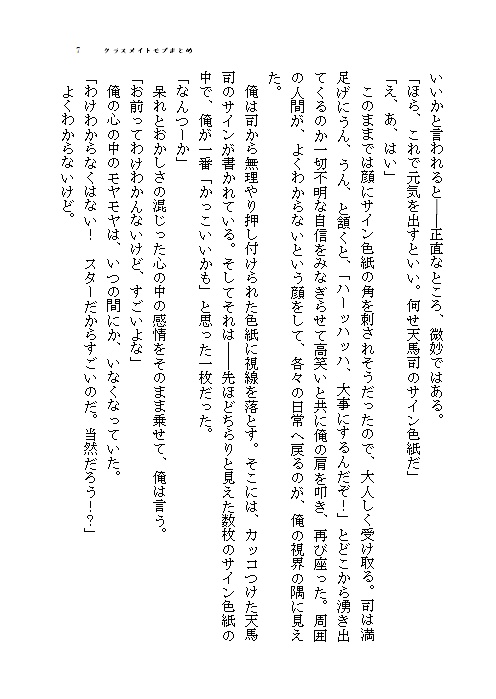 7 クラスメイトモブまとめ
いいかと言われると――正直なところ、微妙ではある。
「ほら、これで元気を出すといい。何せ天馬司のサイン色紙だ」
「え、あ、はい」
　このままでは顔にサイン色紙の角を刺されそうだったので、大人しく受け取る。司は満
足げにうん、うん、と頷くと、「ハーッハッハ、大事にするんだぞ！」とどこから湧き出
てくるのか一切不明な自信をみなぎらせて高笑いと共に俺の肩を叩き、再び座った。周囲
の人間が、よくわからないという顔をして、各々の日常へ戻るのが、俺の視界の隅に見え
た。
　俺は司から無理やり押し付けられた色紙に視線を落とす。そこには、カッコつけた天馬
司のサインが書かれている。そしてそれは――先ほどちらりと見えた数枚のサイン色紙の
中で、俺が一番「かっこいいかも」と思った一枚だった。
「なんつーか」
　呆れとおかしさの混じった心の中の感情をそのまま乗せて、俺は言う。
「お前ってわけわかんないけど、すごいよな」
　俺の心の中のモヤモヤは、いつの間にか、いなくなっていた。
「わけわからなくはない！　スターだからすごいのだ。当然だろう！？」
　よくわからないけど。